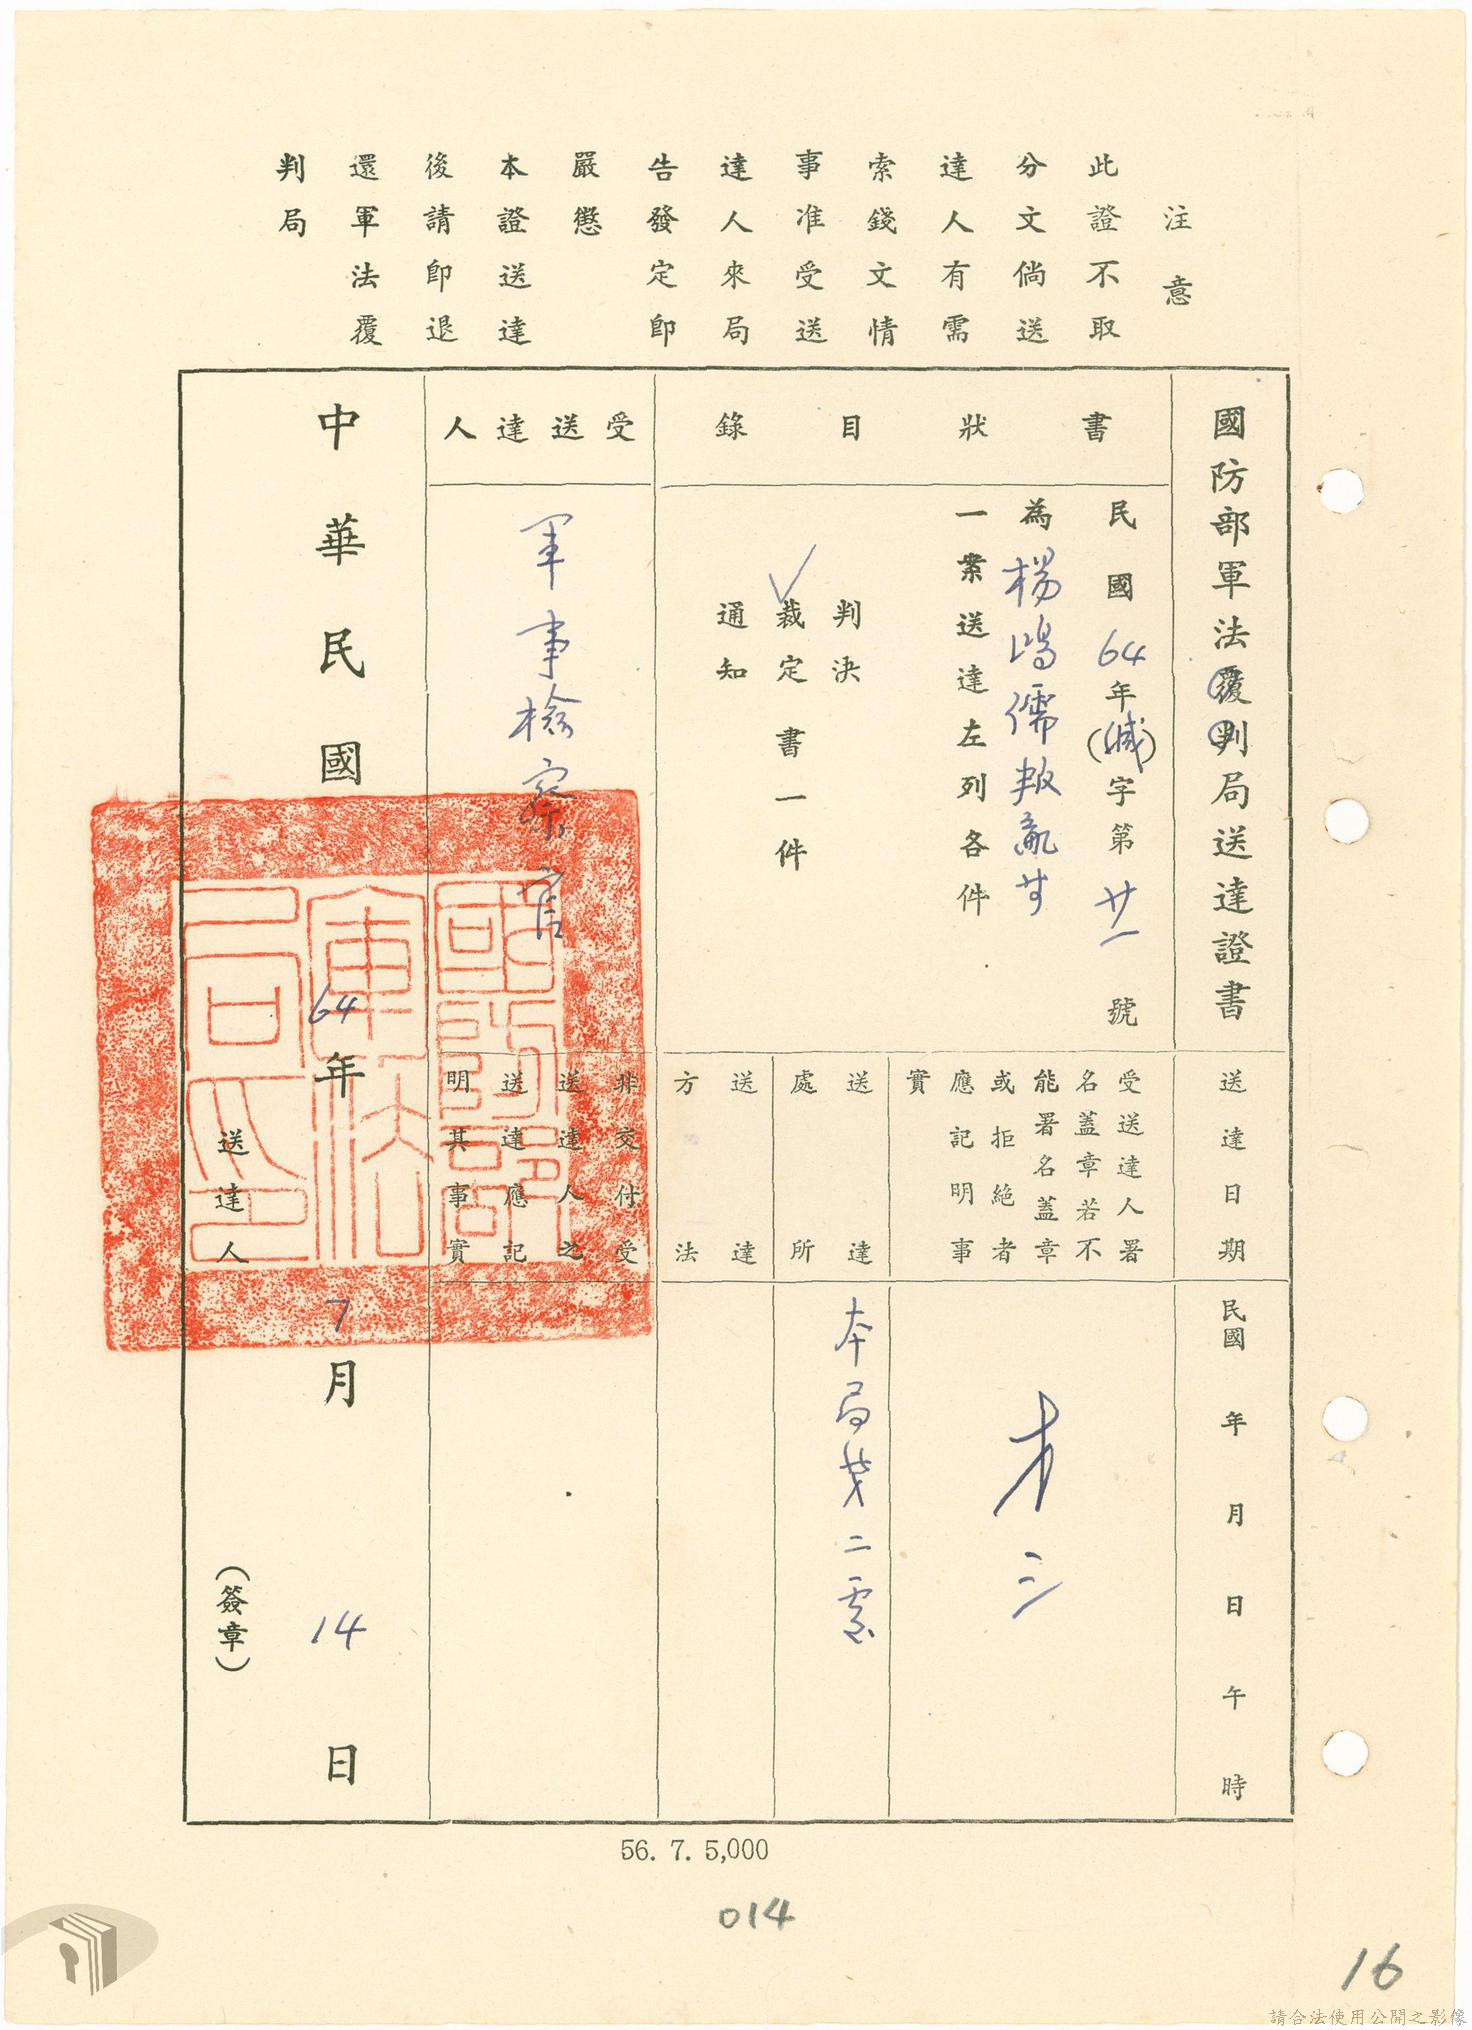 注意
此證不取
分文倘送
達人有需
索錢文情
事准受送
達人來局
告發定即
嚴懲
本證送達
後請即退
還軍法覆
判局
國防部軍法覆判局送達證書
書狀目錄
民國64年(減)字第廿一號
為楊鴻儒叛亂等
一案送達左列各件
判決
✓裁定書一件
通知
受送達人
軍事檢察官
送達日期
民國 年 月 日 午 時
受送達人署
名蓋章若不
能署名蓋章
或拒絕者
應記明事
實
送達
處所
本局
送達
方法
非交付受
送達人之
送達應記
明其事實
國防部
軍法
局印
中華民國64年7月14日
送達人
(簽章)
56. 7. 5,000
014
16
請合法使用公開之影像